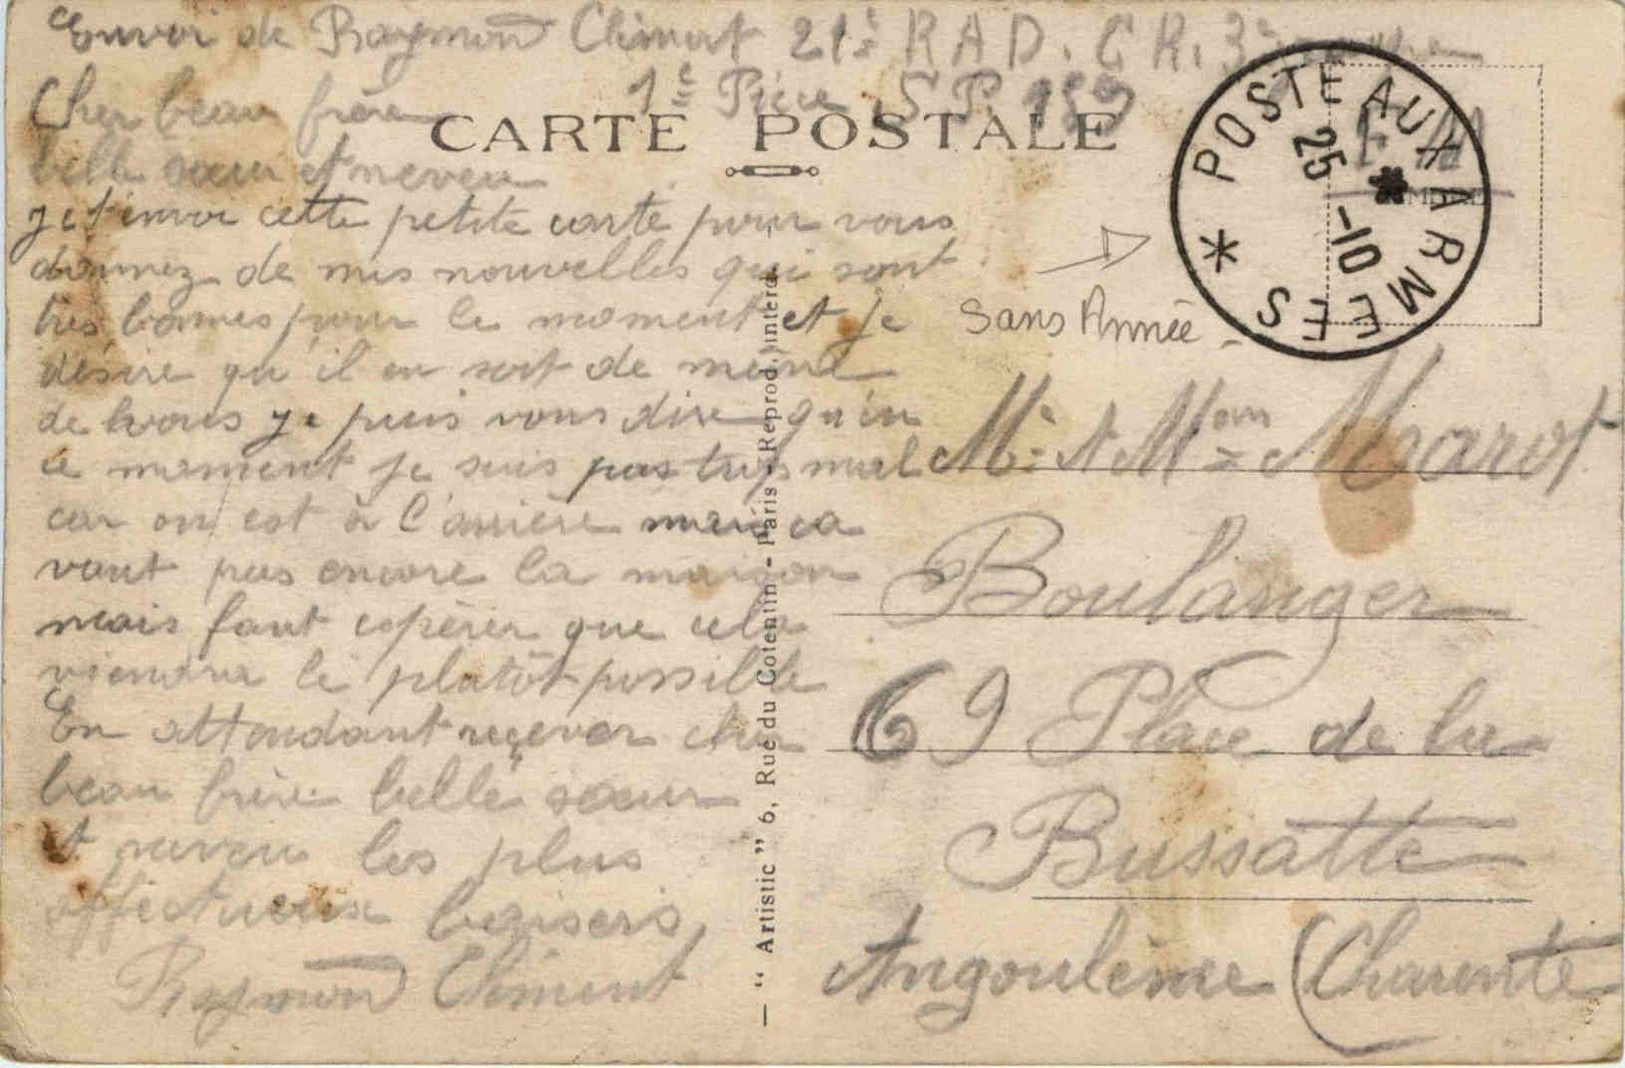 Envoi de Raymond Clément 21è R A D. C R. 3è
1è Pièce S P 159
CARTE POSTALE
Cher beau frère
belle sœur et neveu
je t'envoi cette petite carte pour vous
donnez de mes nouvelles qui sont
très bonnes pour le moment et je
désire qu'il en soit de même
de vous je puis vous dire qu'en
ce moment je suis pas trop mal
car on est à l'arrière mais ça
vaut pas encore la maison
mais faut espérer que cela
viendra le plutôt possible
En attendant reçever cher
beau frère belle sœur
et neveu les plus
affectueux baisers
Raymond Clément
— “ Artistic ” 6, Rue du Cotentin - Paris - Reprod. interd.
* POSTE AUX ARMEES *
25 -10
F M
Sans Année
Mr & Mme Marot
Boulanger
69 Place de la
Bussatte
Angoulême (Charente